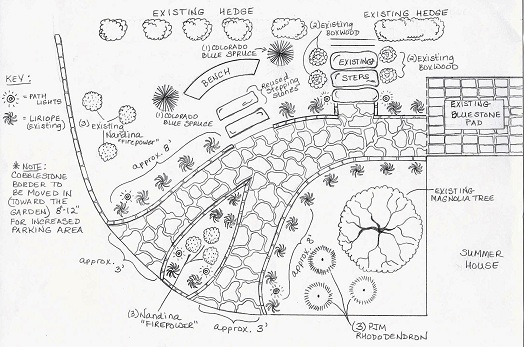 EXISTING HEDGE
EXISTING HEDGE
(2) Existing
BOXWOOD
(1) COLORADO
BLUE SPRUCE
(2) Existing
BOXWOOD
KEY:
= PATH
LIGHTS
= LIRIOPE
(EXISTING)
BENCH
EXISTING
STEPS
Reused
Stepping
Stones
(1) COLORADO
BLUE SPRUCE
(3) Existing
Nandina
"Firepower"
EXISTING
BLUESTONE
PAD
approx. 8'
* NOTE:
COBBLESTONE
BORDER TO
BE MOVED IN
(TOWARD THE
GARDEN) 8"-12"
FOR INCREASED
PARKING AREA
EXISTING
MAGNOLIA TREE
SUMMER
HOUSE
approx. 8'
approx.
3'
(3) Nandina
"FIREPOWER"
approx. 3'
(3) PJM
RHODODENDRON